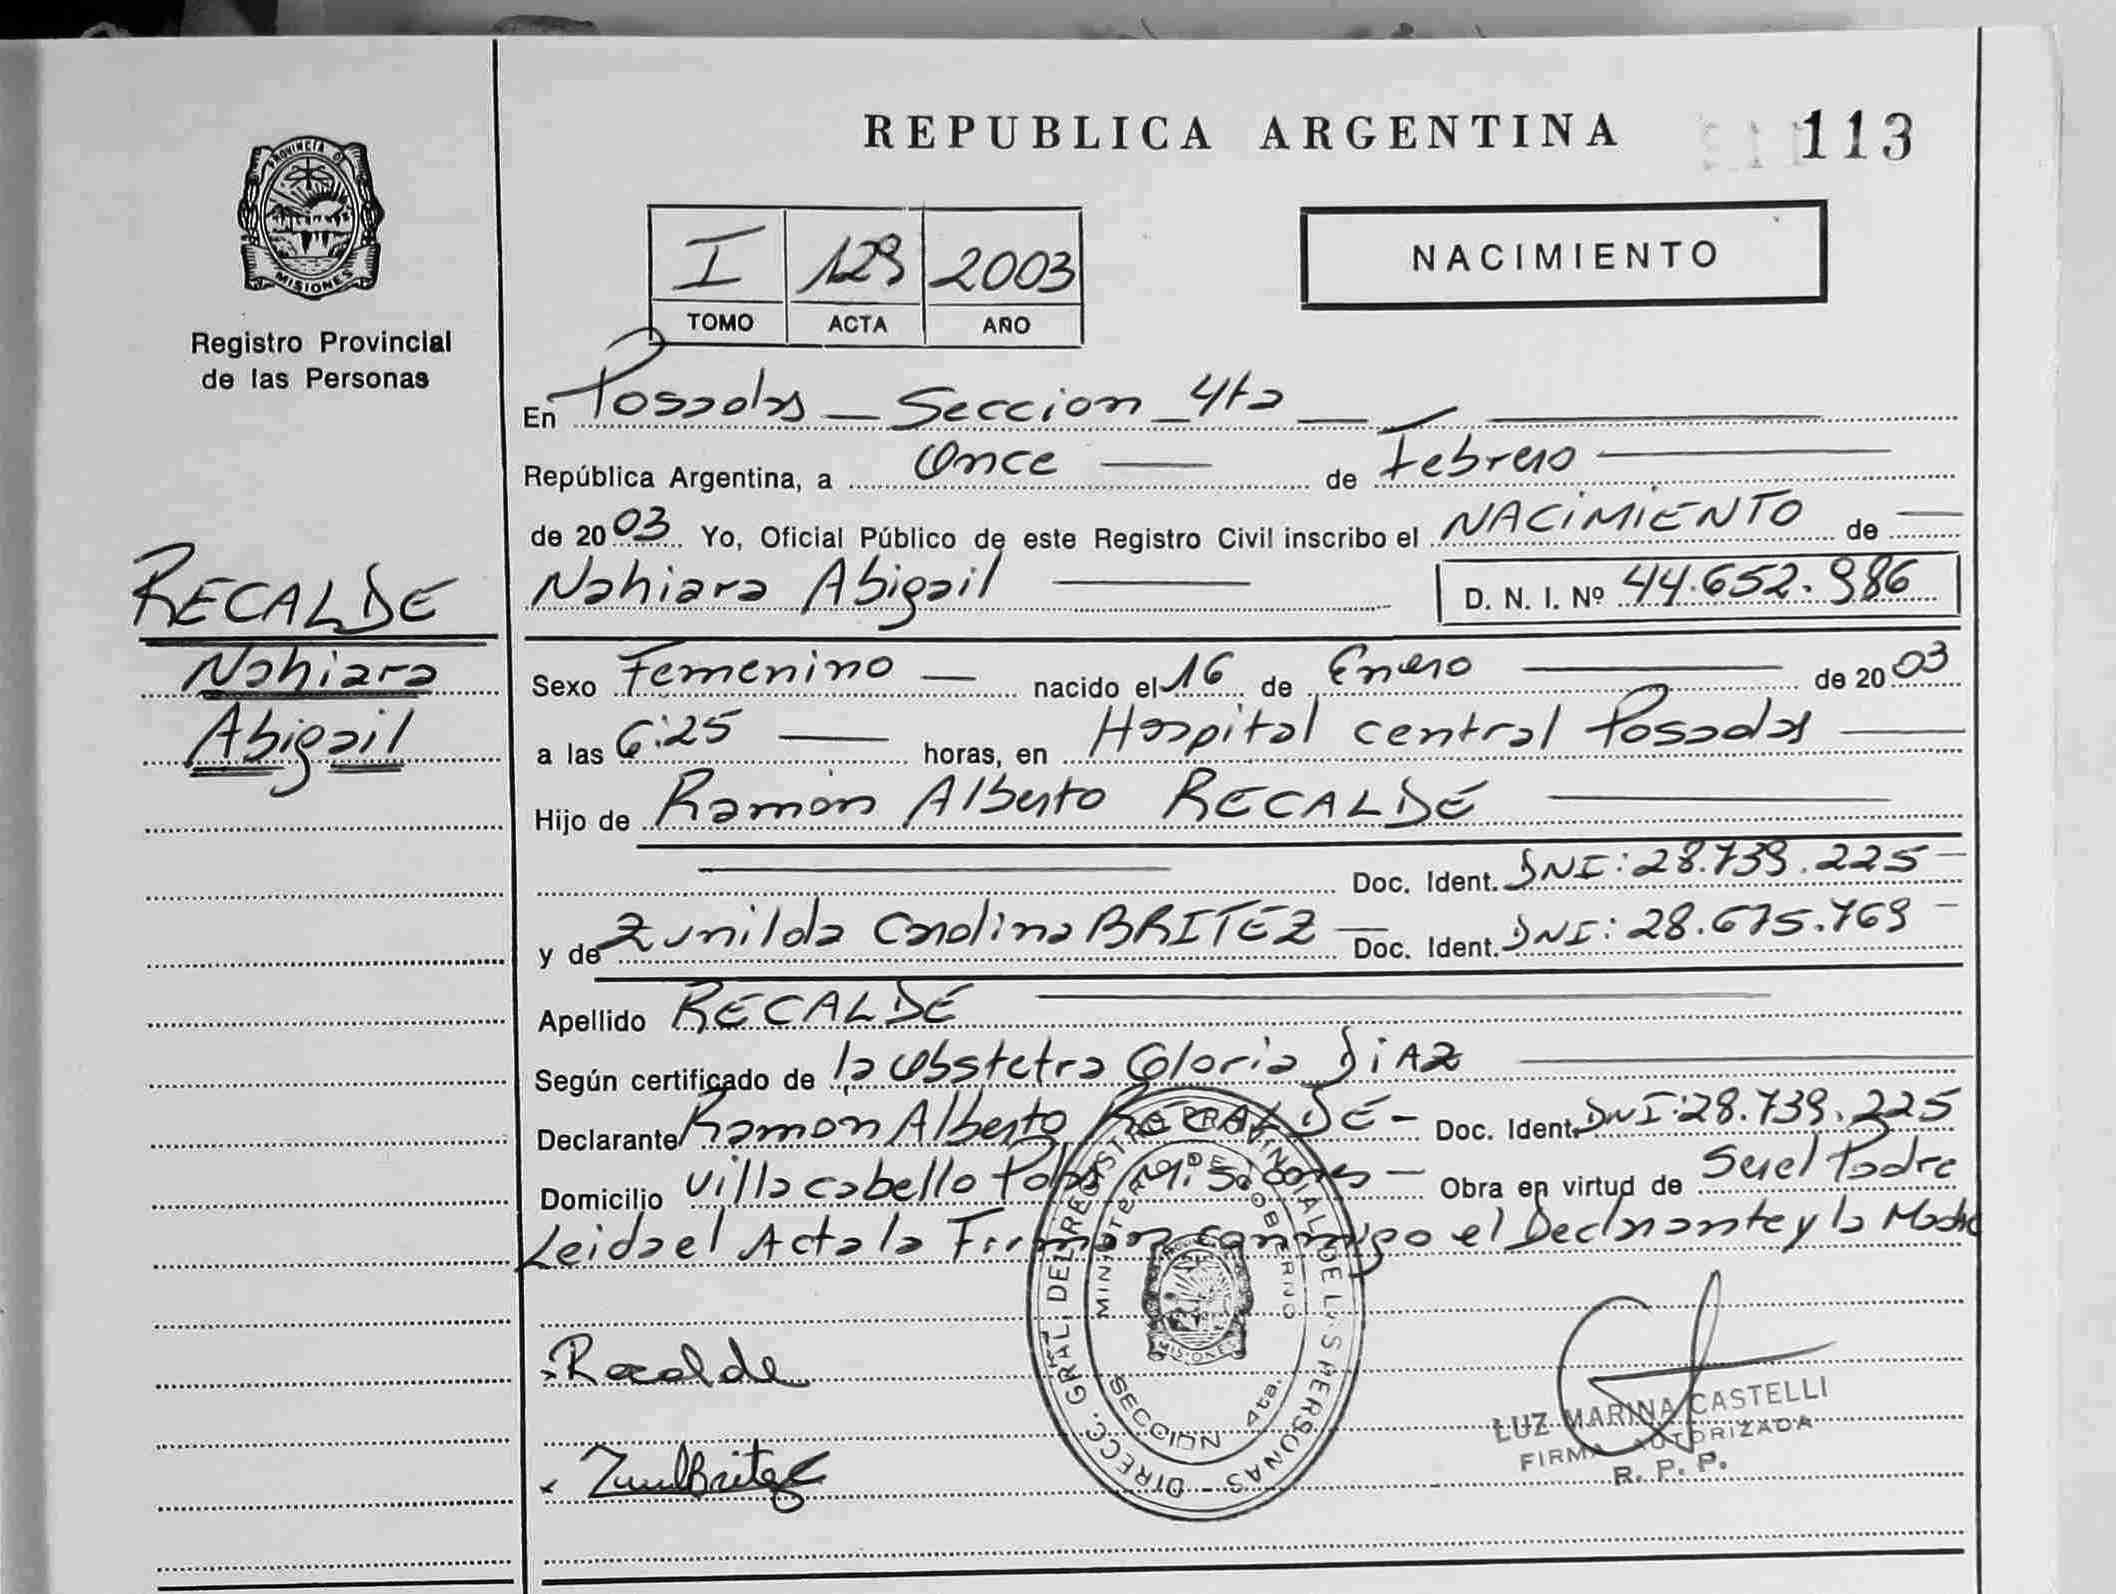 REPUBLICA ARGENTINA
113
PROVINCIA DE MISIONES
Registro Provincial
de las Personas
I 129 2003
TOMO ACTA AÑO
NACIMIENTO
En Posadas — Seccion 4ta —
República Argentina, a Once — de Febrero —
de 2003 Yo, Oficial Público de este Registro Civil inscribo el NACIMIENTO de —
Nahiara Abigail — D. N. I. Nº 44.652.986
RECALDE
Nahiara
Abigail
Sexo Femenino — nacido el 16 de Enero — de 2003
a las 6:25 — horas, en Hospital central Posadas —
Hijo de Ramón Alberto RECALDE —
— Doc. Ident. DNI: 28.739.225 —
y de Zunilda Carolina BRITEZ — Doc. Ident. DNI: 28.675.769 —
Apellido RECALDE —
Según certificado de la Obstetra Gloria DiAZ —
Declarante Ramon Alberto RECALDE — Doc. Ident. DNI: 28.739.225
Domicilio Villa cabello Pdas Misiones — Obra en virtud de Ser el Padre
Leida el Acta la Firman conmigo el Declarante y la Madre
DIRECC. GRAL. DEL REGISTRO PROVINCIAL DE LAS PERSONAS
MINISTERIO DE GOBIERNO
MISIONES
SECCION 4ta.
Recalde
ZunilBritez
LUZ MARINA CASTELLI
FIRMA AUTORIZADA
R. P. P.